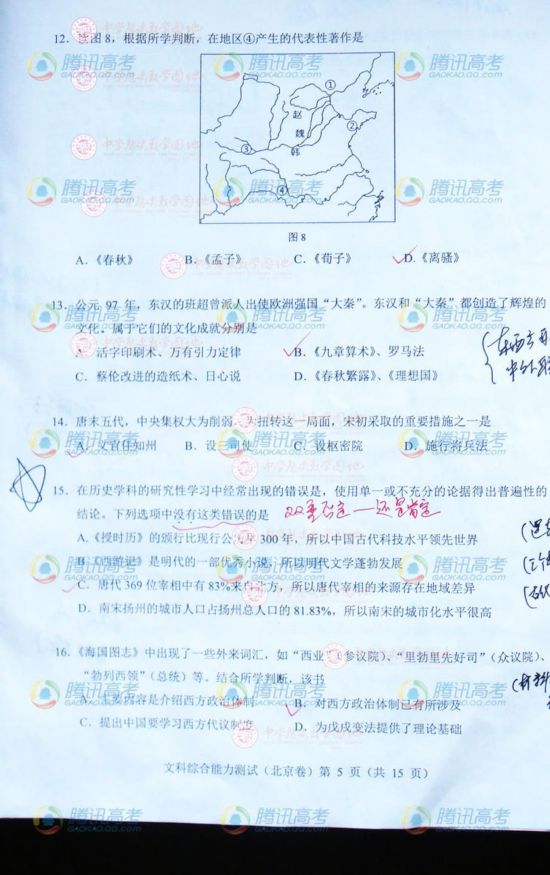 12．读图 8，根据所学判断，在地区④产生的代表性著作是
①
赵
魏
②
③
韩
④
图 8
A.《春秋》 B.《孟子》 C.《荀子》 D.《离骚》
13．公元 97 年，东汉的班超曾派人出使欧洲强国“大秦”。东汉和“大秦”都创造了辉煌的
文化。属于它们的文化成就分别是
A．活字印刷术、万有引力定律 B.《九章算术》、罗马法
C．蔡伦改进的造纸术、日心说 D.《春秋繁露》、《理想国》
14．唐末五代，中央集权大为削弱。为扭转这一局面，宋初采取的重要措施之一是
A．文官任知州 B．设三司使 C．设枢密院 D．施行将兵法
15．在历史学科的研究性学习中经常出现的错误是，使用单一或不充分的论据得出普遍性的
结论。下列选项中没有这类错误的是
A.《授时历》的颁行比现行公历早 300 年，所以中国古代科技水平领先世界
B.《西游记》是明代的一部优秀小说，所以明代文学蓬勃发展
C．唐代 369 位宰相中有 83%来自北方，所以唐代宰相的来源存在地域差异
D．南宋扬州的城市人口占扬州总人口的 81.83%，所以南宋的城市化水平很高
16.《海国图志》中出现了一些外来词汇，如“西业”（参议院）、“里勃里先好司”（众议院）、
“勃列西领”（总统）等。结合所学判断，该书
A．主要内容是介绍西方政治体制 B．对西方政治体制已有所涉及
C．提出中国要学习西方代议制度 D．为戊戌变法提供了理论基础
文科综合能力测试（北京卷）第 5 页（共 15 页）
腾讯高考
GAOKAO.QQ.COM
中学历史教学园地